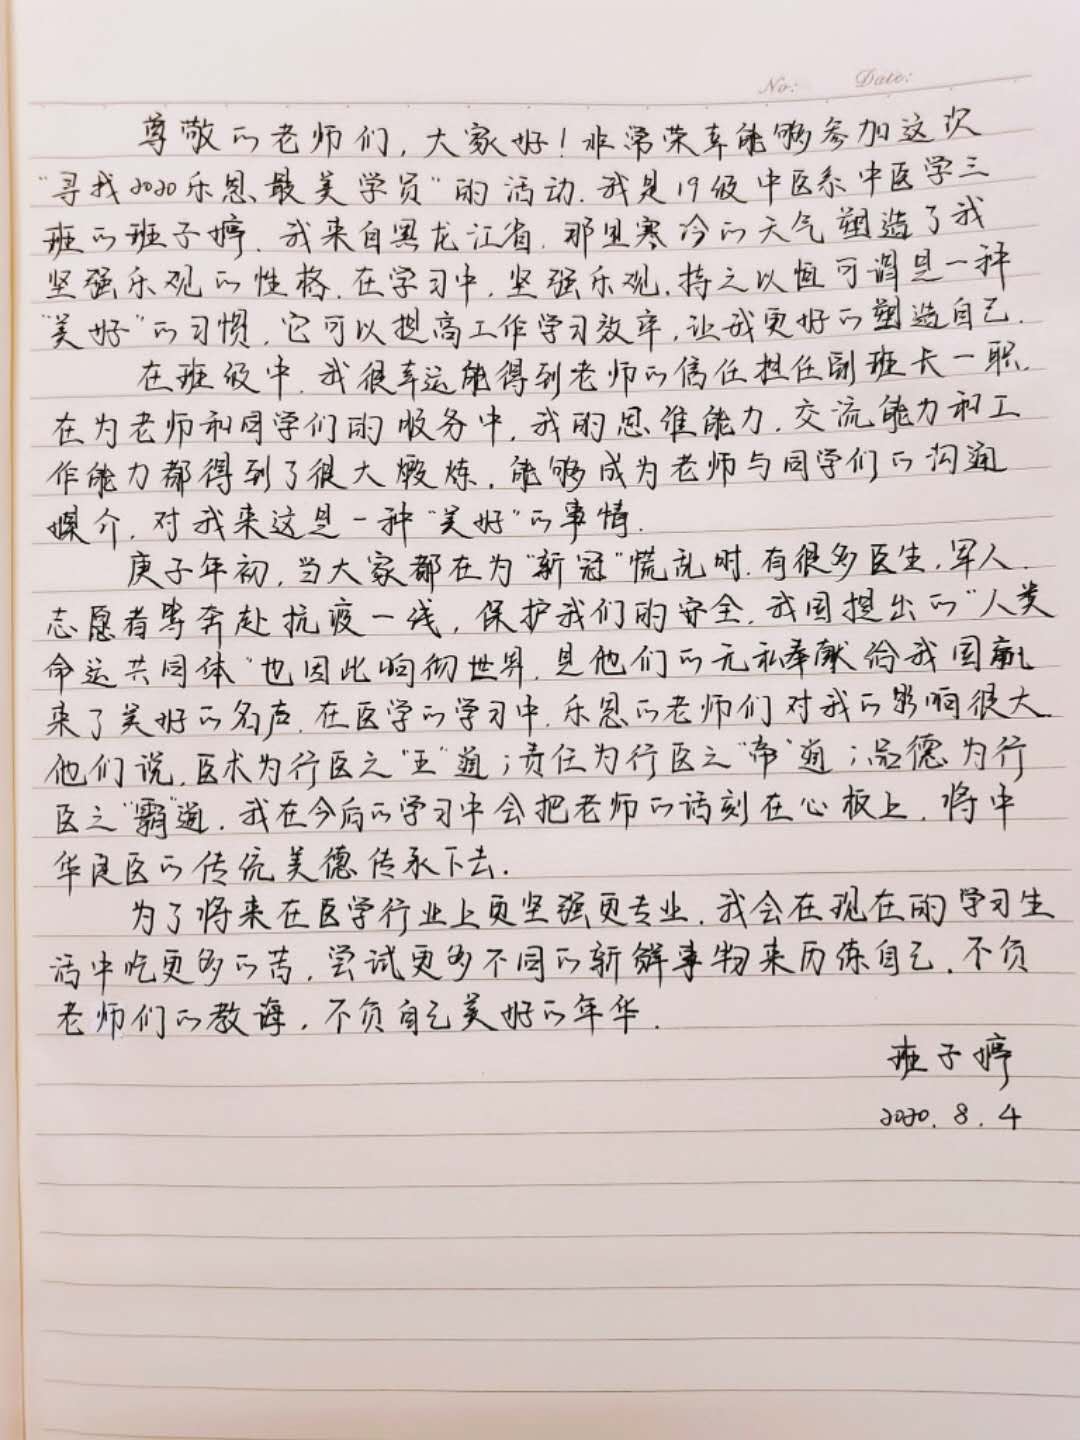 No: Date:
尊敬的老师们,大家好!非常荣幸能够参加这次
“寻找2020乐恩最美学员”的活动.我是19级中医系中医学三
班的班子婷.我来自黑龙江省.那里寒冷的天气塑造了我
坚强乐观的性格.在学习中,坚强乐观,持之以恒可谓是一种
“美好”的习惯,它可以提高工作学习效率,让我更好的塑造自己.
在班级中.我很幸运能得到老师的信任担任副班长一职.
在为老师和同学们的服务中,我的思维能力,交流能力和工
作能力都得到了很大煅炼.能够成为老师与同学们的沟通
媒介.对我来这是一种“美好”的事情.
庚子年初,当大家都在为“新冠”慌乱时.有很多医生,军人.
志愿者等奔赴抗疫一线,保护我们的安全.我国提出的“人类
命运共同体”也因此响彻世界.是他们的无私奉献给我国赢
来了美好的名声.在医学的学习中.乐恩的老师们对我的影响很大.
他们说.医术为行医之“王”道;责任为行医之“帝”道;品德为行
医之“霸”道.我在今后的学习中会把老师的话刻在心板上.将中
华良医的传统美德传承下去.
为了将来在医学行业上更坚强更专业.我会在现在的学习生
活中吃更多的苦,尝试更多不同的新鲜事物来历练自己.不负
老师们的教诲,不负自己美好的年华.
班子婷
2020.8.4